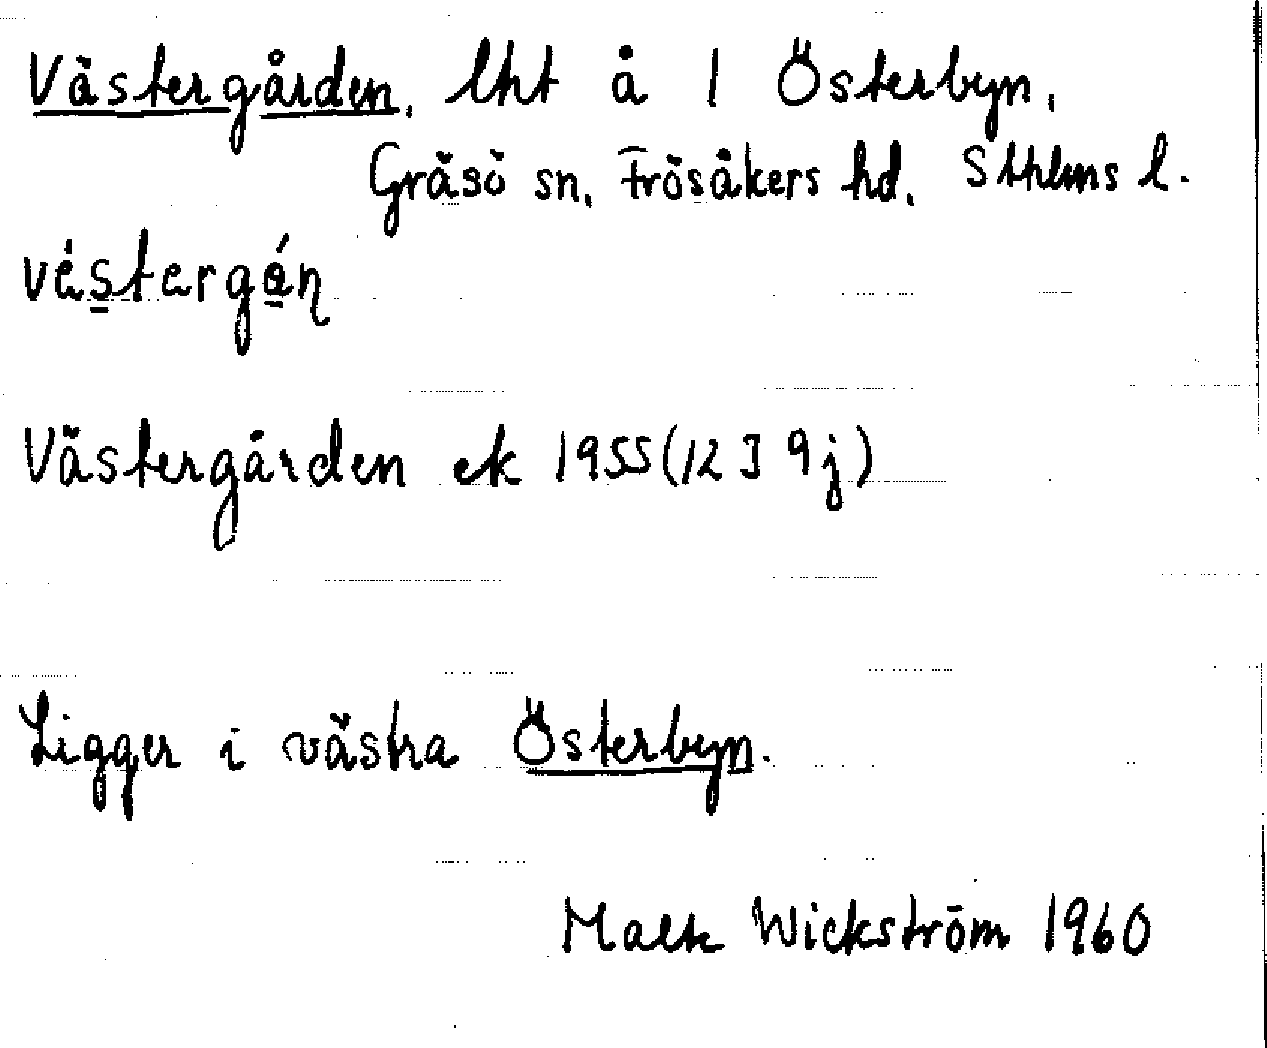 Västergården, lht å 1 Österbyn,
Gräsö sn, Frösåkers hd, Sthlms l.
västergán
Västergården ek 1955 (12 J 9j)
Ligger i västra Österbyn.
Malte Wickström 1960